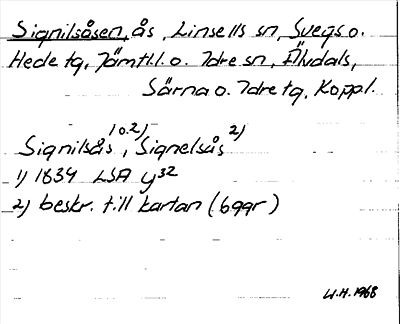 Signilsåsen, ås, Linsells sn, Svegs o.
Hede tg, Jämtl.l. o. Idre sn, Älvdals,
Särna o. Idre tg, Koppl.
Signilsås 1 o. 2), Signelsås 2)
1) 1834 LSA y32
2) beskr. till kartan (bggr)
W.H. 1968